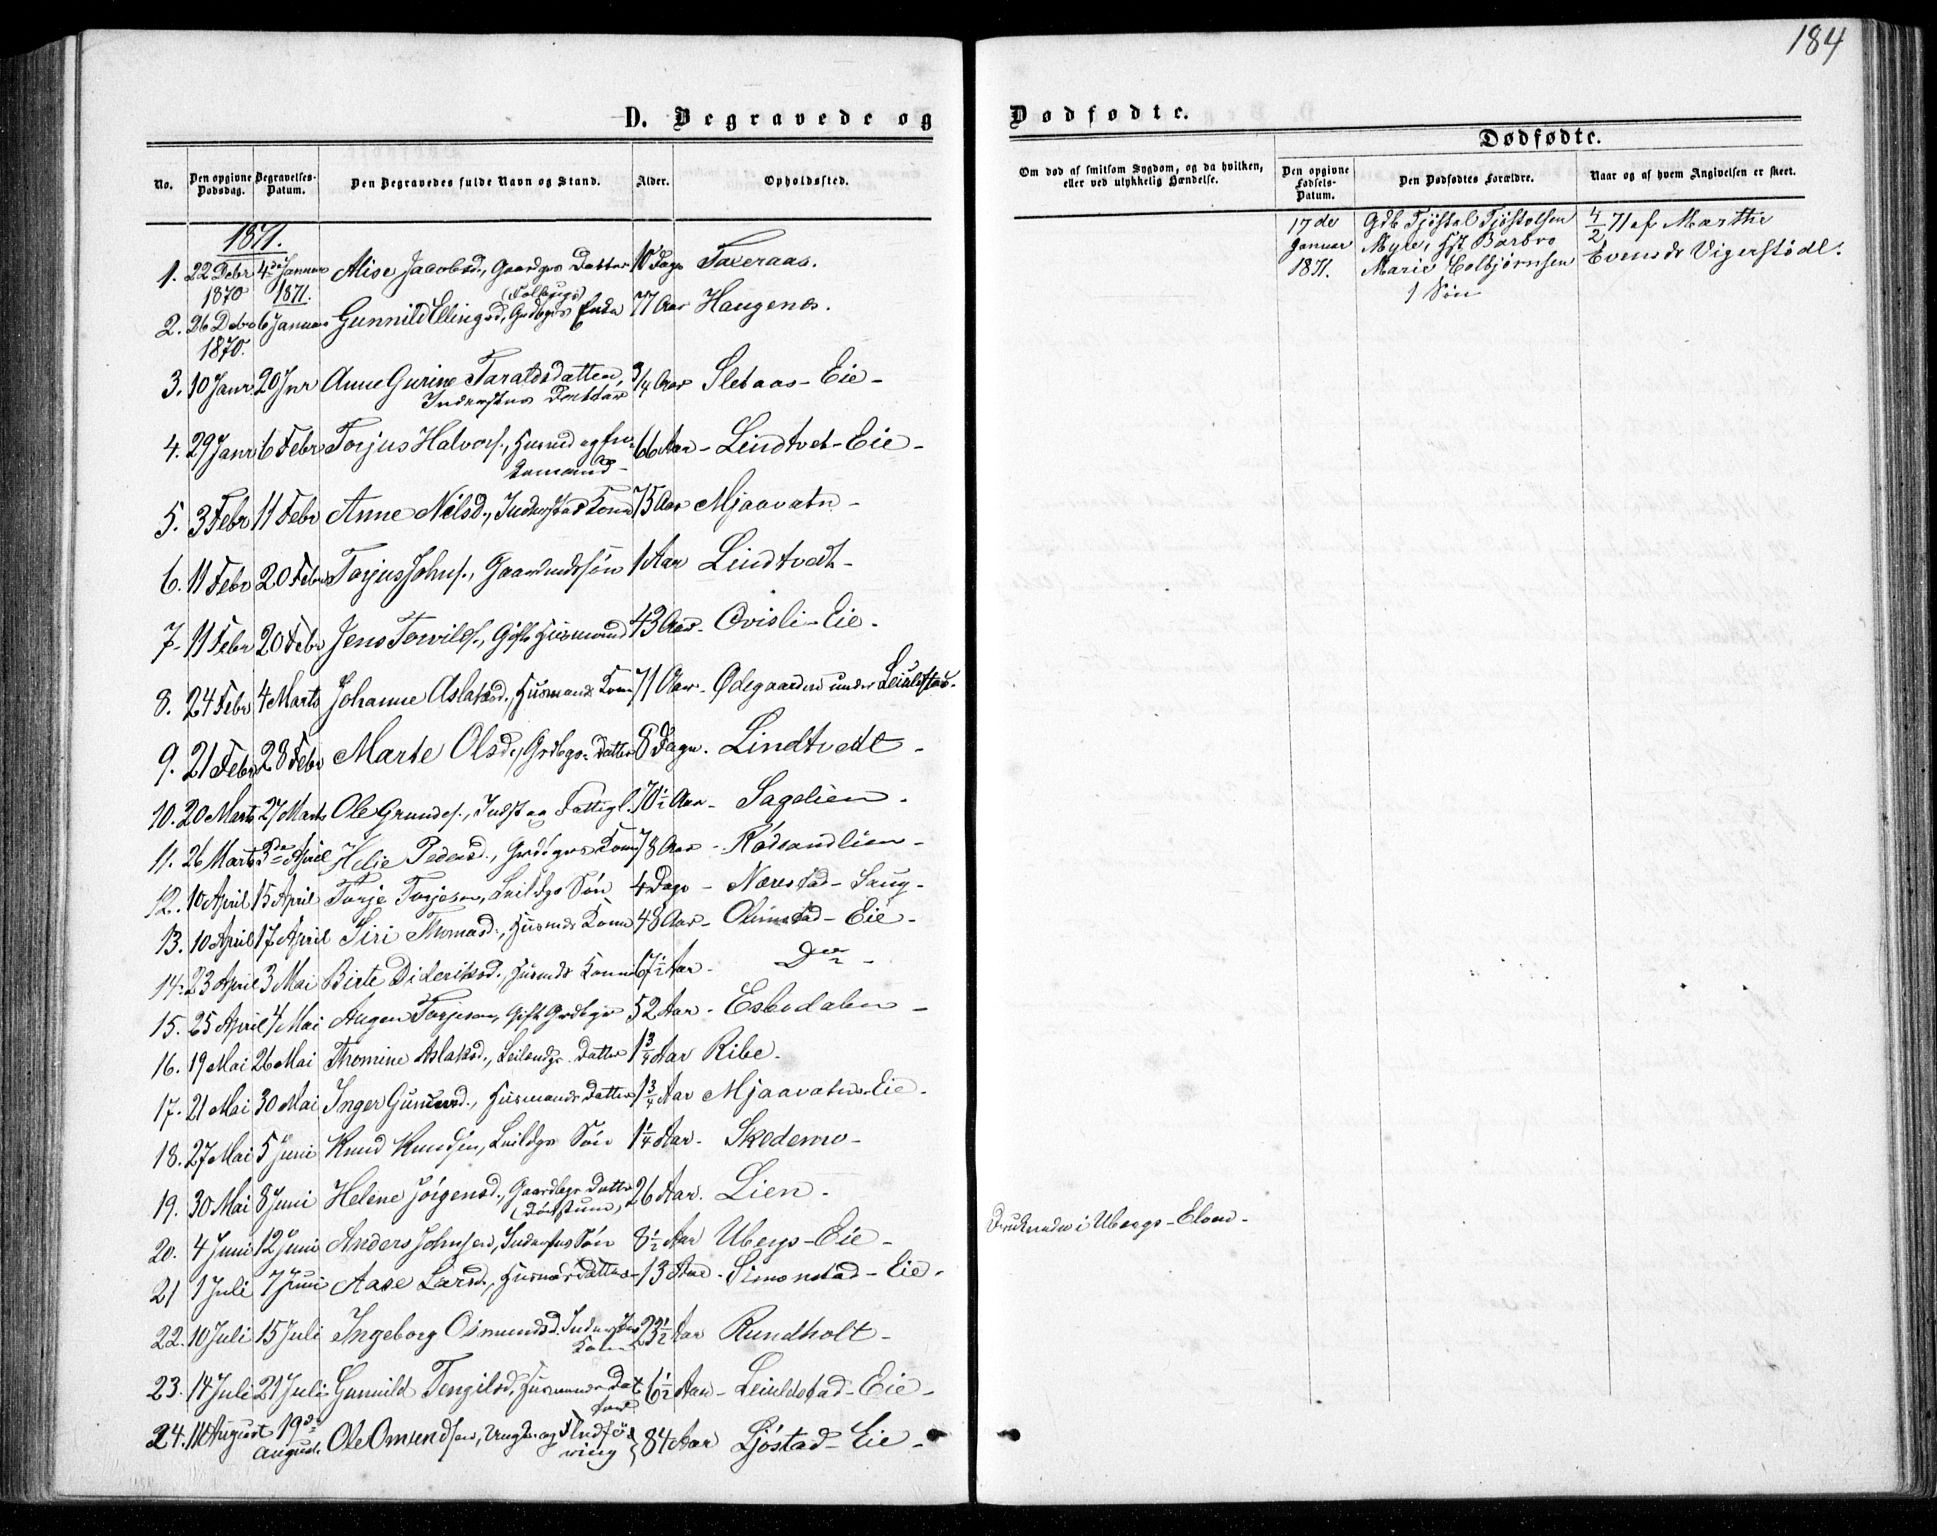 184
D. Begravede og Dødfødte.
Dødfødte.
No.
Den opgivne Dødsdag.
Begravelses-Datum.
Den Begravedes fulde Navn og Stand.
Alder.
Opholdssted.
Om død af smitsom Sygdom, og da hvilken,
eller ved ulykkelig Hændelse.
Den opgivne Fødsels-Datum.
Den Dødfødtes Forældre.
Naar og af hvem Angivelsen er skeet.
1871.
1. 22 Debr 4de Januar Alise Jacobsd., Gaardgrs Datter 10 Dage Faxeraas.
1870 1871. (Folkugs)
2. 26 Debr 6 Januar Gunnild Ellingsd, Grdbgrs Enke 77 Aar Haugenes.
1870.
3. 10 Janr. 20 Jnr Anne Gurine Taraldsdatter, 3/4 Aar Sletaas-Eie-
Inderstes Datter
4. 29 Janr 6 Febr Torjus Halvors., Husmd og 66 Aar- Lindtvet-Eie-
5. 3 Febr 11 Febr Anne Nilsd., Inderstes Kone 75 Aar Mjaavatn-
6. 11 Febr 20 Febr Torjus Johns., Gaardmdssøn 1 Aar Lindtvedt-
7- 11 Febr 20 Febr Jens Torvilds., Gift Husmand 43 Aar- Qvisli-Eie.
8. 24 Febr 4 Marts Johanne Aslaksd., Husmands Kone 71 Aar- Ødegaarden under Leiulfstad.
9. 21 Febr 28 Febr Marte Olsd., Grdbgs-Datter 8 Dage. Lindtvedt-
10. 20 Marts 27 Marts Ole Grundes., Indst og Fattigl. 70½ Aar- Sagelien.
11. 26 Marts 3die April Helje Pedersd., Grdbgrs Kone 78 Aar- Rødsandlien-
12. 10 April 15 April Torje Torjesen, Leildgs Søn 4 Dage- Nærestad-Saug-
13. 10 April 17 April Siri Thomasd., Husmds Kone 48 Aar- Olimstad-Eie-
14- 23 April 3 Mai Birte Dideriksd., Husmds Kone 67½ Aar- Do-
15. 25 April 4 Mai Augen Torjesen, Gift Grdbgr 52 Aar- Esbodalen-
16. 19 Mai 26 Mai Thomine Aslaksd., Leilendgs Datter 1¾ Aar Ribe.
17. 21 Mai 30 Mai Inger Gunnersd., Husmands Datter 1¾ Aar Mjaavatns-Eie.
18. 27 Mai 5 Juni Knud Knudsen, Leildgs Søn 1¼ Aar- Skodemo-
19. 30 Mai 8 Juni Helene Jørgensd., Gaardbgs Datter 26 Aar. Lien-
(Døvstum)
20. 4 Juni 12 Juni Anders Johnsen, Inderstes Søn 8½ Aar Ubergs-Eie- Druknede i Ubergs-Elven-
21 1 Juli 7 Juni Aase Larsd., Husmds Datter- 13 Aar. Simonstad-Eie.
22. 10 Juli 15 Juli Ingeborg Osmundsd. Inderstes 23½ Aar Rundholt-
Kone
23. 14 Juli 21 Juli Gunnild Tengilsd, Husmands Dat 6½ Aar- Leiuldstad-Eie-
ter
24. 11 August 19de Ole Omundsen, Ungk. og Indfø 84 Aar Ljøstad-Eie-
August.
17de Gdb Tjøstel Tjøstelsen 4/2 71 af Marthe
Januar Myre, Hst Barbro Evensdr Vigerstødl.
1871. Marie Colbjørnsen
1 Søn